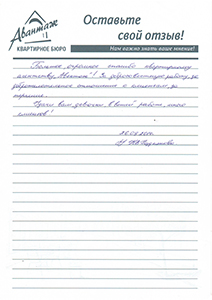 Авантаж
КВАРТИРНОЕ БЮРО
Оставьте
свой отзыв!
Нам важно знать ваше мнение!
Большое огромное спасибо квартирному
агентству „Авантаж"! За добросовестную работу, за
доброжелательное отношение к клиентам, за
терпение.
Удачи вам, девочки, в вашей работе, много
клиентов!